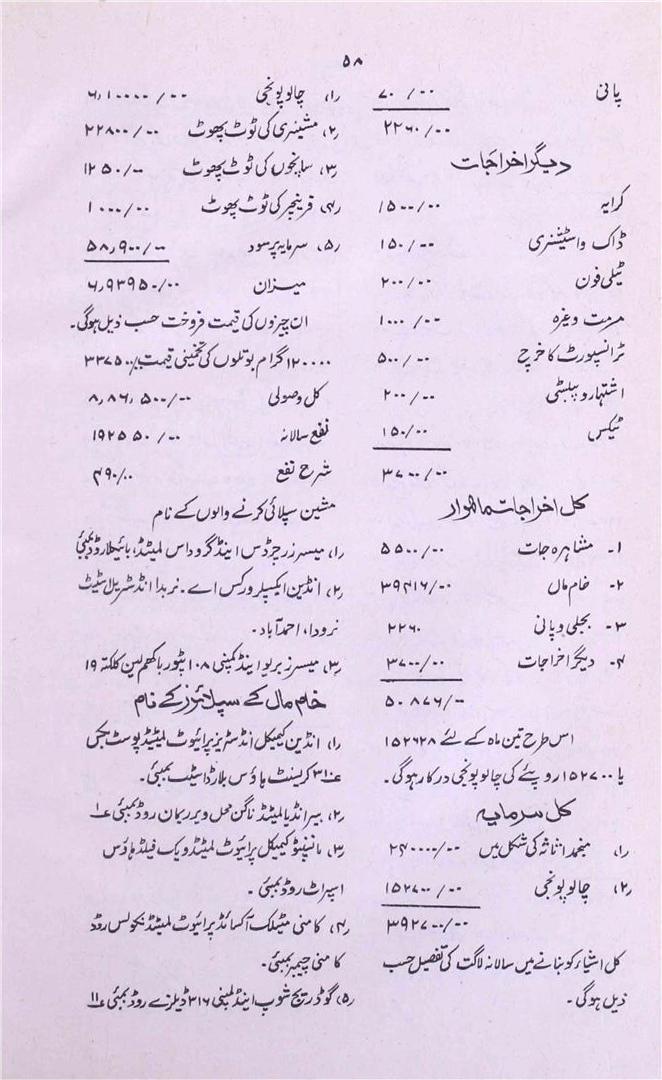 ۵۸
پانی ۷۰/۰۰
۲۲۶۰/۰۰
دیگر اخراجات
کرایہ ۱۵۰۰/۰۰
ڈاک و اسٹیشنری ۱۵۰/۰۰
ٹیلی فون ۲۰۰/۰۰
مرمت وغیرہ ۱۰۰۰/۰۰
ٹرانسپورٹ کا خرچ ۵۰۰/۰۰
اشتہار و پبلسٹی ۲۰۰/۰۰
ٹیکس ۱۵۰/۰۰
۳۷۰۰/۰۰
کل اخراجات ماہوار
۱۔ مشاہرہ جات ۵۵۰۰/۰۰
۲۔ خام مال ۳۹۴۱۶/۰۰
۳۔ بجلی و پانی ۲۲۶۰
۴۔ دیگر اخراجات ۳۷۰۰/۰۰
۵۰۸۷۶/-
اس طرح تین ماہ کے لئے ۱۵۲۶۲۸
یا ۱۵۲۷۰۰ روپئے کی چالو پونجی درکار ہوگی۔
کل سرمایہ
(۱) منجمد اثاثہ کی شکل میں ۲۴۰۰۰۰/۰۰
(۲) چالو پونجی ۱۵۲۷۰۰/۰۰
۳۹۲۷۰۰/۰۰
کل اشیاء کو بنانے میں سالانہ لاگت کی تفصیل حسب
ذیل ہوگی۔
(۱) چالو پونجی ۶٫۱۰۰۰۰/۰۰
(۲) مشینری کی ٹوٹ پھوٹ ۲۲۸۰۰/۰۰
(۳) سانچوں کی ٹوٹ پھوٹ ۱۲۵۰/۰۰
(۴) فرینچر کی ٹوٹ پھوٹ ۱۰۰۰/۰۰
(۵) سرمایہ پر سود ۵۸٫۹۰۰/۰۰
میزان ۶٫۹۳۹۵۰/۰۰
ان چیزوں کی قیمت فروخت حسب ذیل ہوگی۔
۱۲۰۰۰۰ گرام بوتلوں کی تخمینی قیمت ۳۳۷۵۰۰/۰۰
کل وصولی ۸٫۸۶٫۵۰۰/۰۰
نفع سالانہ ۱۹۲۵۵۰/۰۰
شرح نفع ۴۹۰/۰۰
مشین سپلائی کرنے والوں کے نام
(۱) میسرز رچرڈس اینڈ گروداس لمیٹڈ، بائیکلا روڈ بمبئی
(۲) انڈین ایکسپلر ورکس اے۔ نربدا انڈسٹریل اسٹیٹ
نرودا، احمدآباد۔
(۳) میسرز بریو اینڈ کمپنی ۱۰۸ لین کلکتہ ۱۹
خام مال کے سپلائرز کے نام
(۱) انڈین کیمیکل انڈسٹریز پرائیوٹ لمیٹڈ پوسٹ بجس
۳۱۰ کریسنٹ ہاؤس بلارڈ اسٹیٹ بمبئی۔
(۲) بیر انڈیا لمیٹڈ ناگن محل ویر نریمان روڈ بمبئی ۱
(۳) کیمیکل پرائیوٹ لمیٹڈ ویک فیلڈ ہاؤس
اسپراٹ روڈ بمبئی۔
(۴) کامنی مٹیلک آکسائڈ پرائیوٹ لمیٹڈ نکولس روڈ
کامنی چیمبر بمبئی۔
(۵) گوڈریج شوپ اینڈ کمپنی ۳۱۶ ڈیلزے روڈ بمبئی ۱۱